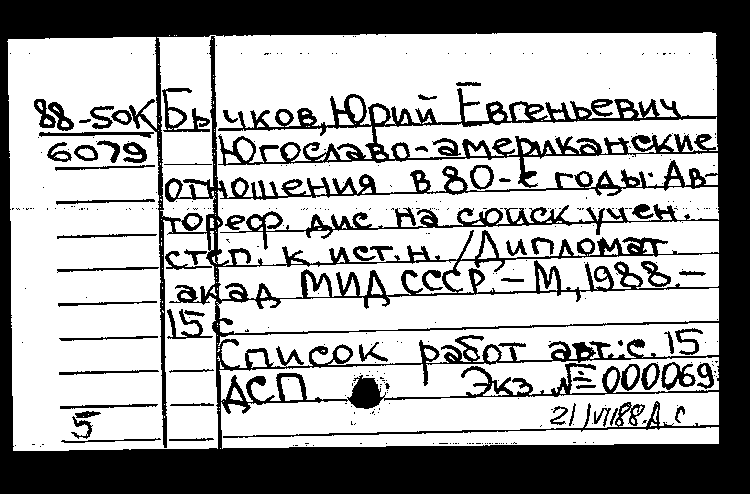 88-50К Бычков, Юрий Евгеньевич
6079 Югославо-американские
отношения в 80-е годы: Ав-
тореф. дис. на соиск. учен.
степ. к. ист. н. /Дипломат.
акад МИД СССР. - М., 1988. -
15 с.
Список работ авт.: с. 15
ДСП. Экз. № 000069
5 21/VI 88. А. С.